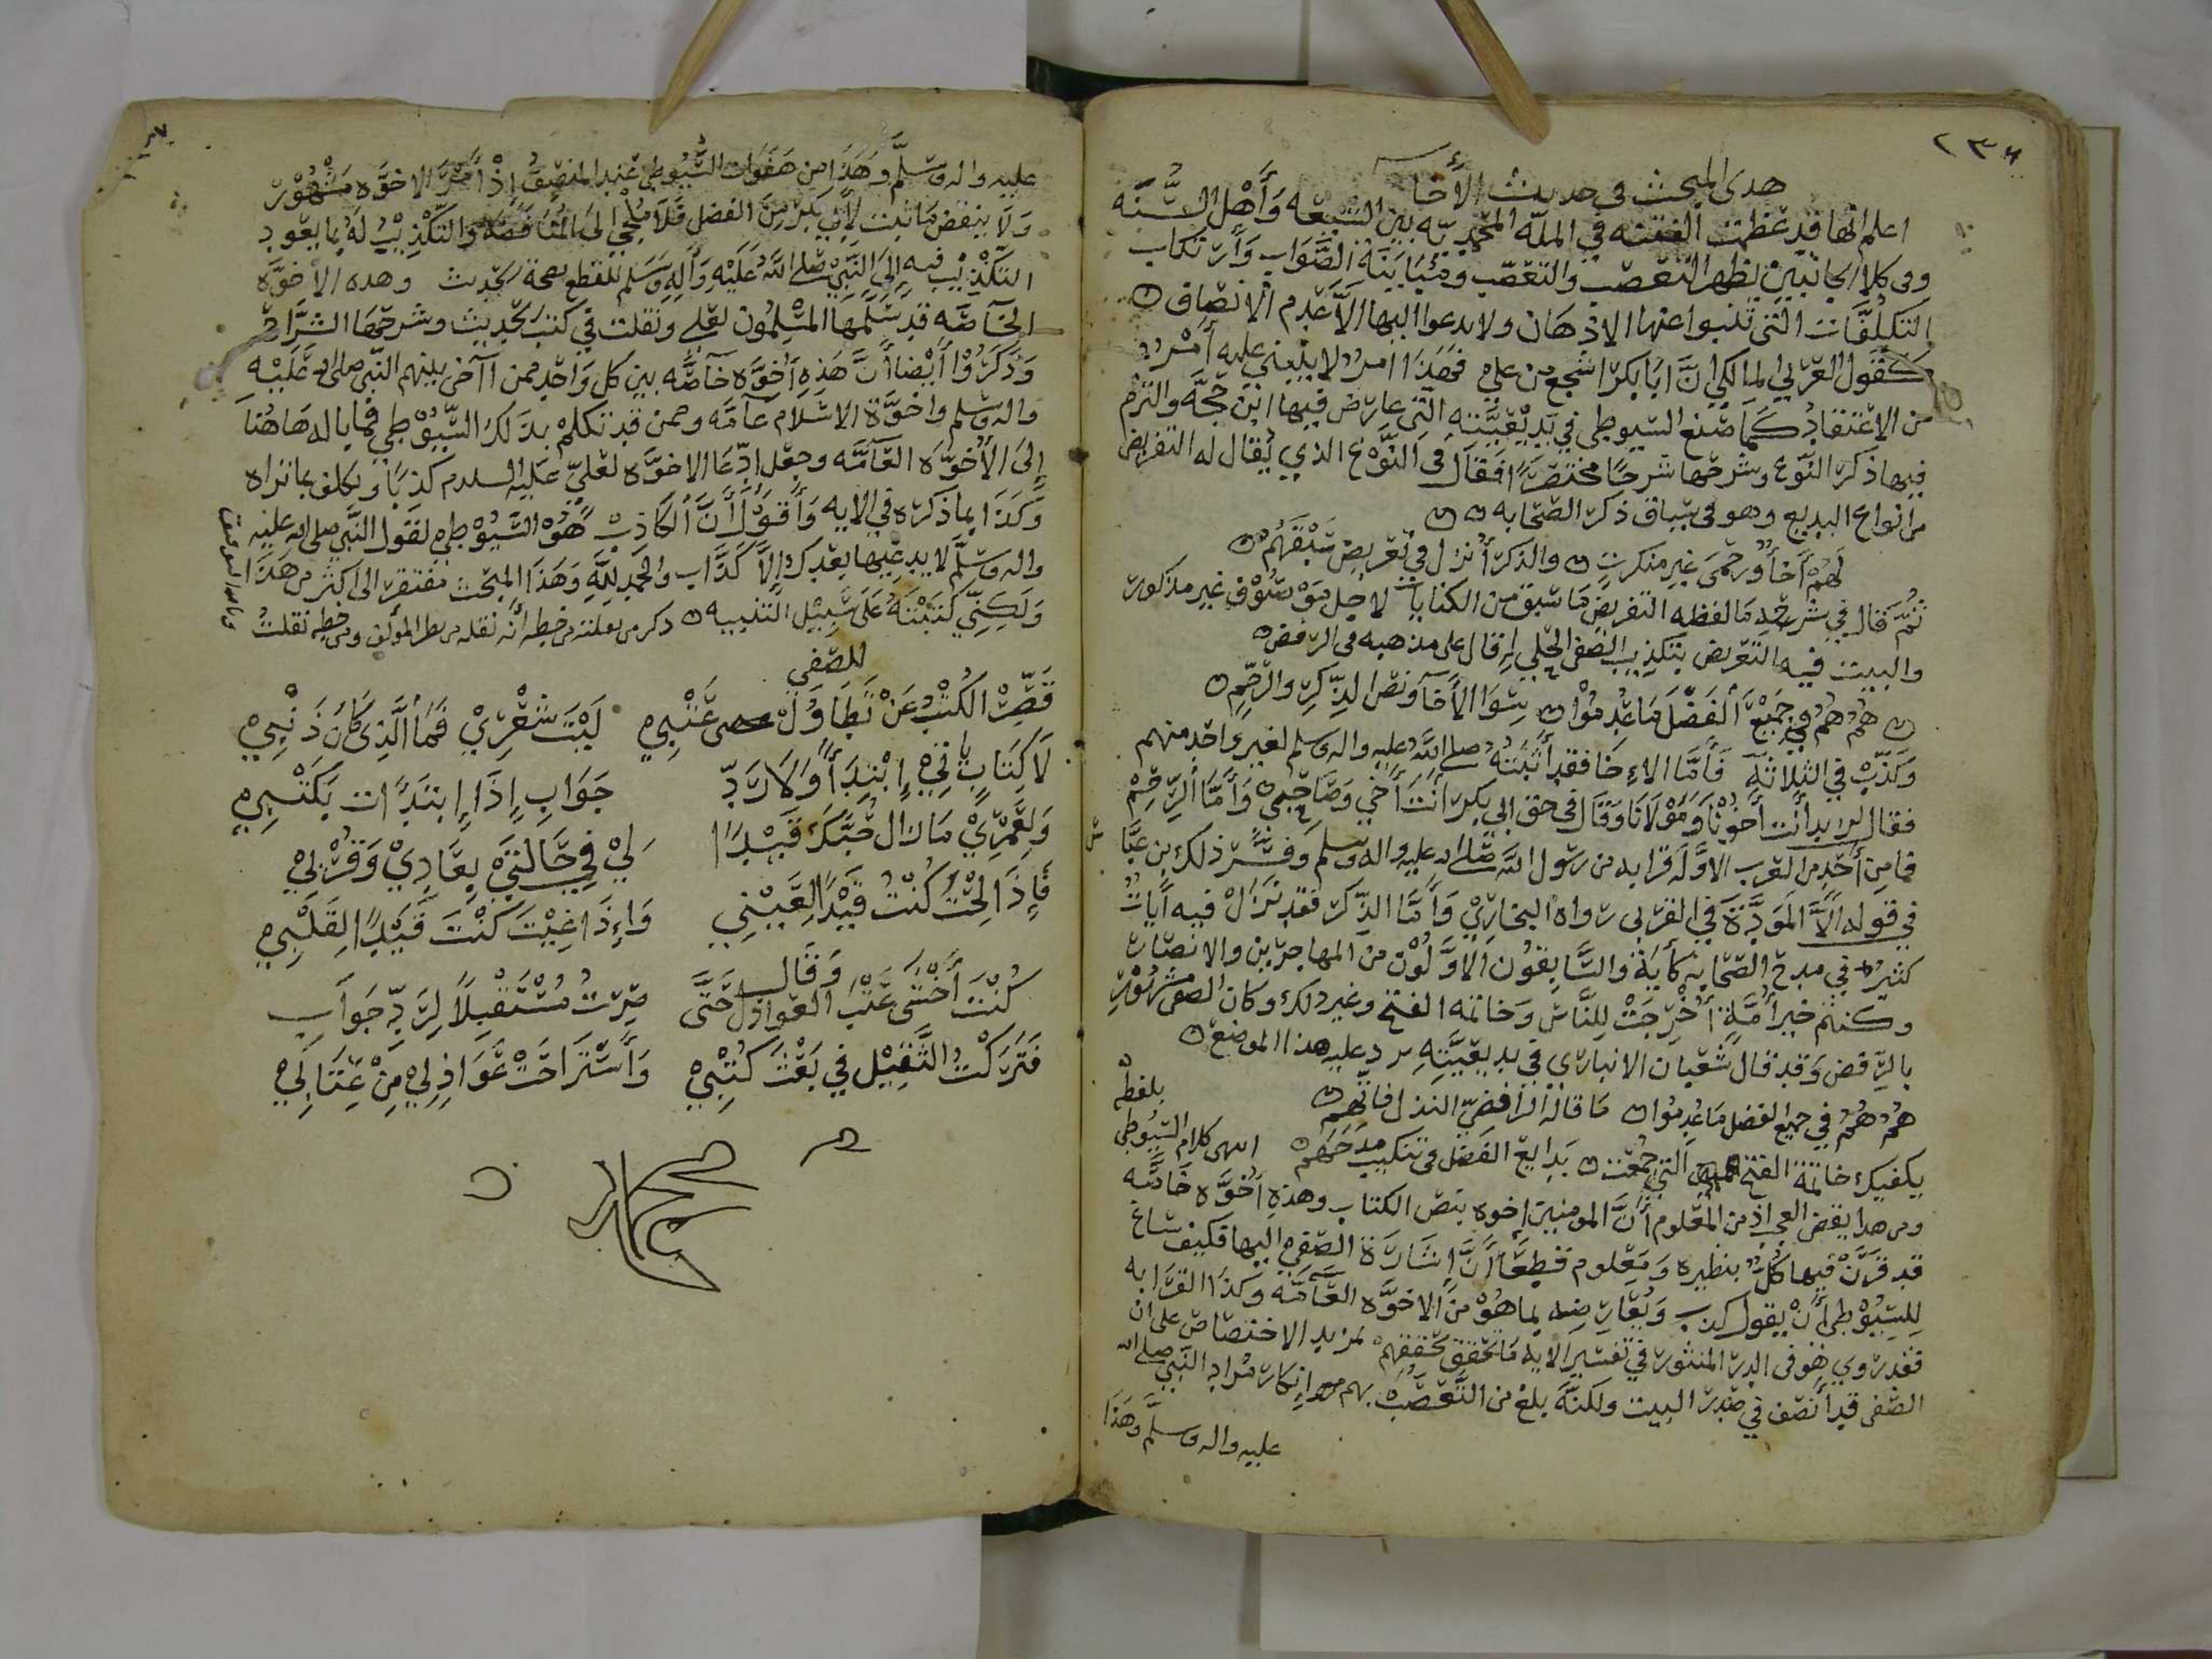 ٢٣٦
هدى المبحث في حديث الأخا
اعلم انها قد عظمت الفتنه في الملّه المحمديّه بين الشيعه وَأهْل السُّنّه
وفى كلام الجانبين تظهر التعصب والتعصّب ومُبَايَنَة الصَّوَاب وَارتكاب
التكلُّفَات التى تنبوا عنها الاذهان ولا يدعوا اليها الاَّ عَدم الانصاف
كقول العزّ بي المالكي انَّ ابَا بكرٍ اشجع من علي فهَذا امرٌ لا ينبني عليه أمْرٌ
من الاعتقاد كمَا صَنع السيوطي في بَديْعيَّته التى عارض فيها ابْن حجَّه والتزم
فيها ذكر النَّوع وشرحَها شرحًا مختصَرًا فقَال فى النَّوْع الذي يُقال له التعريض
من انواع البديع وهو فى سياق ذكر الصّحابه
لَهُمْ أخَاً وُرحْمىَ غير منكرتٍ والذكر أُنزل في تعريض سَبْقهُم
ثُمَّ قال في شرحه مَا لفظه التعريض مَا سيق من الكنايات لاجل مَوْصُوْف غير مذكور
والبيت فيه التعريض بتكذيب الصّفى الحلّي اذ قال على مذهبه فى الرفض
هُمُ هُمُ في جَمِيْع الفَضْل مَا عُدِمُوْا سِوَا الأخَآء ونصّ الذِّكرِ والرّحِم
وَكذبْ في الثلاثَةِ فأمَّا الاءِخَا فقد أَثبتهُ صلى اللهُ عليه واله وسلم لغير وَاحد منهم
فقال لزيد أنت أخُوْنَا وَمَوْلَانَا وقَال في حق ابي بكر انت أَخي وَصَاحبى وَأَمَّا الرّحِمْ
فما من أحَدٍ من العرب الا وَلَه قرابه من رسُول اللّه صَلى الله عليه واله وسلم وفسَّر ذلك بن عبَّاس
في قوله الَّا الْمَوَدَّةَ في القربى رواه البخاريْ وَأَمَّا الذّكر فقد نزَلْ فيه آيَاتٌ
كثيرٌ في مدح الصّحابه كآية والسَّابِقُون الاوَّلُوْن منْ المهاجرين والانصَار
وكنتم خير أُمَّةٍ أُخْرِجَتْ لِلنَّاسْ وَخاتمه الفتح وغير ذلك وكان الصفى مشْهُوْرًا
بالرّفض وَقد قال شعبان الاثاري في بديعيَّتِه يرد عليه هذا الموضع
هُمُ هُمُ في جميع الفضل مَا عُدِموُا مَا قالَهُ الرّافضِيّ النذل فاتّهم
يكفيك خاتمة الفتح التي جمعت بَدايع الفَضْل فى تنكيب مَدْحهم انتهى كلام السيُوطي بلفظه
ومن هدا يقضى العجب اذ من المعْلوم أَنَّ المومنين إخوه بنصّ الكتاب وهذه أُخُوَّه خَاصَّه
قد قَرَنَ فيها كُلٌّ بنظيره وَمعْلوم قطعًا أَنَّ إشَارَة الصّفيّ اليها فكيف سَاغ
لِلسّيُوْطي أَنْ يقول كذب وَيُعَارِضه بِما هُوْ منْ الاخوَّه العَامّه وَكَذا القرَابه
فقد رَوِي هُوَ فى الدرّ المنثور في تفسير الايه مَا تحقق تحققهمْ لمزيد الاختصاص على ان
الصّفى قد أنصَف في صَدْر البيت ولكنَّه بلغ من التَّعصُّب بهم انكار مُراد النّبي صلى الله
عليه واله وسلَّم وهَذا

عليه واله وسَلَّم وهَذا من هَفوَات السُّيُوطي عند المنصِف إذْ أمْرُ الاخوَّه مشْهُوْر
وَلَا ينقض مَا ثبت لأَبي بكْر من الفضل فَلَا مُلجْى الى المُنَاقضَه والتّكْذِيْب لَهُ بِما يعُود
التكْذيْب فيه إلى النَّبيّ صَلى اللهُ عَلَيْهِ وَآله وَسَلَم للقطع بصحة الحديث وهده الاخوَّه
الخَاصَّه قد سَلَّمها المسْلِمُون لعلي ونقلت في كتب الحديث وشرحَهَا الشرَّاح
وَذكَرُوْا أَيْضًا أَنَّ هَذِهِ أُخوَّه خَآصَّه بين كل وَاحد ممن آاخى بينهم النّبي صلى الله عَلَيْهِ
واله وسَلم واخوَّة الاسلَام عآمّه وممن قد تكلّمْ بدَلك السّيُوْطي فما باله هَاهُنَا
إِلىَ الأُخُوَّه العَآمَّه وجعْل ادِّعَا الاخوَّه لعليّ عَليْه السلام كذبًا وتكلف بما تراه
وَكَذَا بِمَا ذكرَه في الايه وَأَقوْلُ أَنَّ الكَاذِبْ هُوَ السّيُوْطي لقول النَّبي صلى الله عليه
واله وسَلَّم لا يدعيها بعْدك الاَّ كذَّاب والحمد لِلَّهِ وَهَذا المبحَث مفتقر الى اكثر من هَذا
وَلَكِنّي كَتَبْتهُ عَلَى سَبِيْل التَّنبيه ذكر من نقلته من خطه أنه نقله من خط المؤلف ومن خطه نقلتُ
وبالله التوفيق
لِلصّفي
قَصِّرْ الكُتْبُ عَنْ تَطَاوُل عَتْبي لَيْتَ شِعْرِيْ فَمَا الَّذِي كَانَ ذَنْبِيْ
لَا كِتَابٌ يَأتي إِبْتِدَاًءً وَلَا رَدّ جَوَابِ إِذَا إِبتَدَأت بكَتْبِي
وَلِعَمْرِيْ مَا زال حُبَّكَ قَيْدًا ليْ فِيْ حَالَتيْ بِعَادِيْ وَقُرْبيْ
فَإِذَا لُحْتَ كُنْتَ قَيْدًا لِعَيْنِي وَإِذَا غِبْتَ كُنْتَ قَيْدًا لِقَلْبِيْ
وَقَال
كُنْتُ أَخْشَى عَتْبَ العَوَاذِل حَتَّى صِرْتُ مُسْتَقْبِلًا لِرَدِّ جَوَاب
فَتَرَكْتُ الثَّقِيْل فيْ بَعْثَ كُتْبِيْ وَأَسْتَرَاحَتْ عَوَاذِلِيْ مِنْ عِتَابي